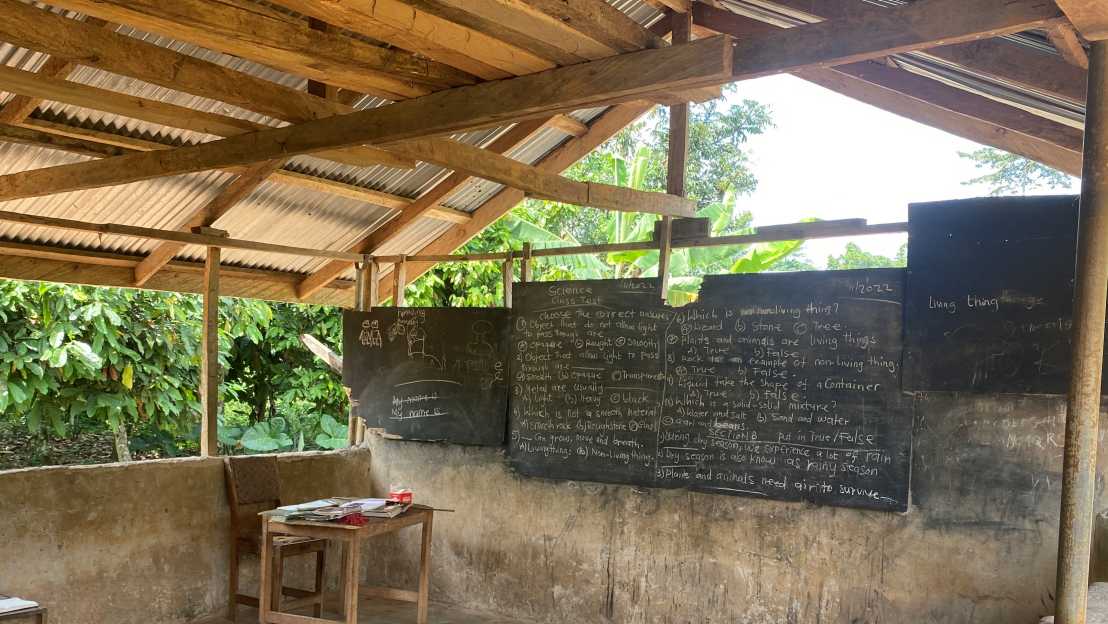 My name is
My name is
Science
11/2022
Class Test
choose the correct answers
1) Object that do not allow light
to pass through are
A) opaque b) Rought c) Smooth
2) Object that allow light to pass
through are
a) Smooth b) opaque c) Transparent
3) Metal are usually
a) light b) Heavy c) black
4) Which is not a smooth material
A) smooth rock b) Rough stone c)
5) Can grow, move and breath.
a) Living things b) Non-living things
11/2022
6) Which is nonliving thing?
a) Lizard b) Stone c) Tree
7) Plants and animals are living things
a) True b) False
8) Rock is an example of non-living things.
a) True b) False.
9) Liquid take the shape of a container
a) True b) false.
10) Which is a solid-solid mixture?
a) Water and salt b) Sand and water
c) and beans.
Section B put in True/False
1) During dry season, we experience a lot of rain
2) Dry season is also know as rainy season
3) Plants and animals need air to survive
Living thing